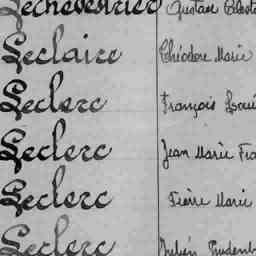 Lechevestrier Gustave Célest
Leclaire Théodore Marie
Leclerc François Loui
Leclerc Jean Marie Fra
Leclerc Pierre Marie
Leclerc Julien Prudent